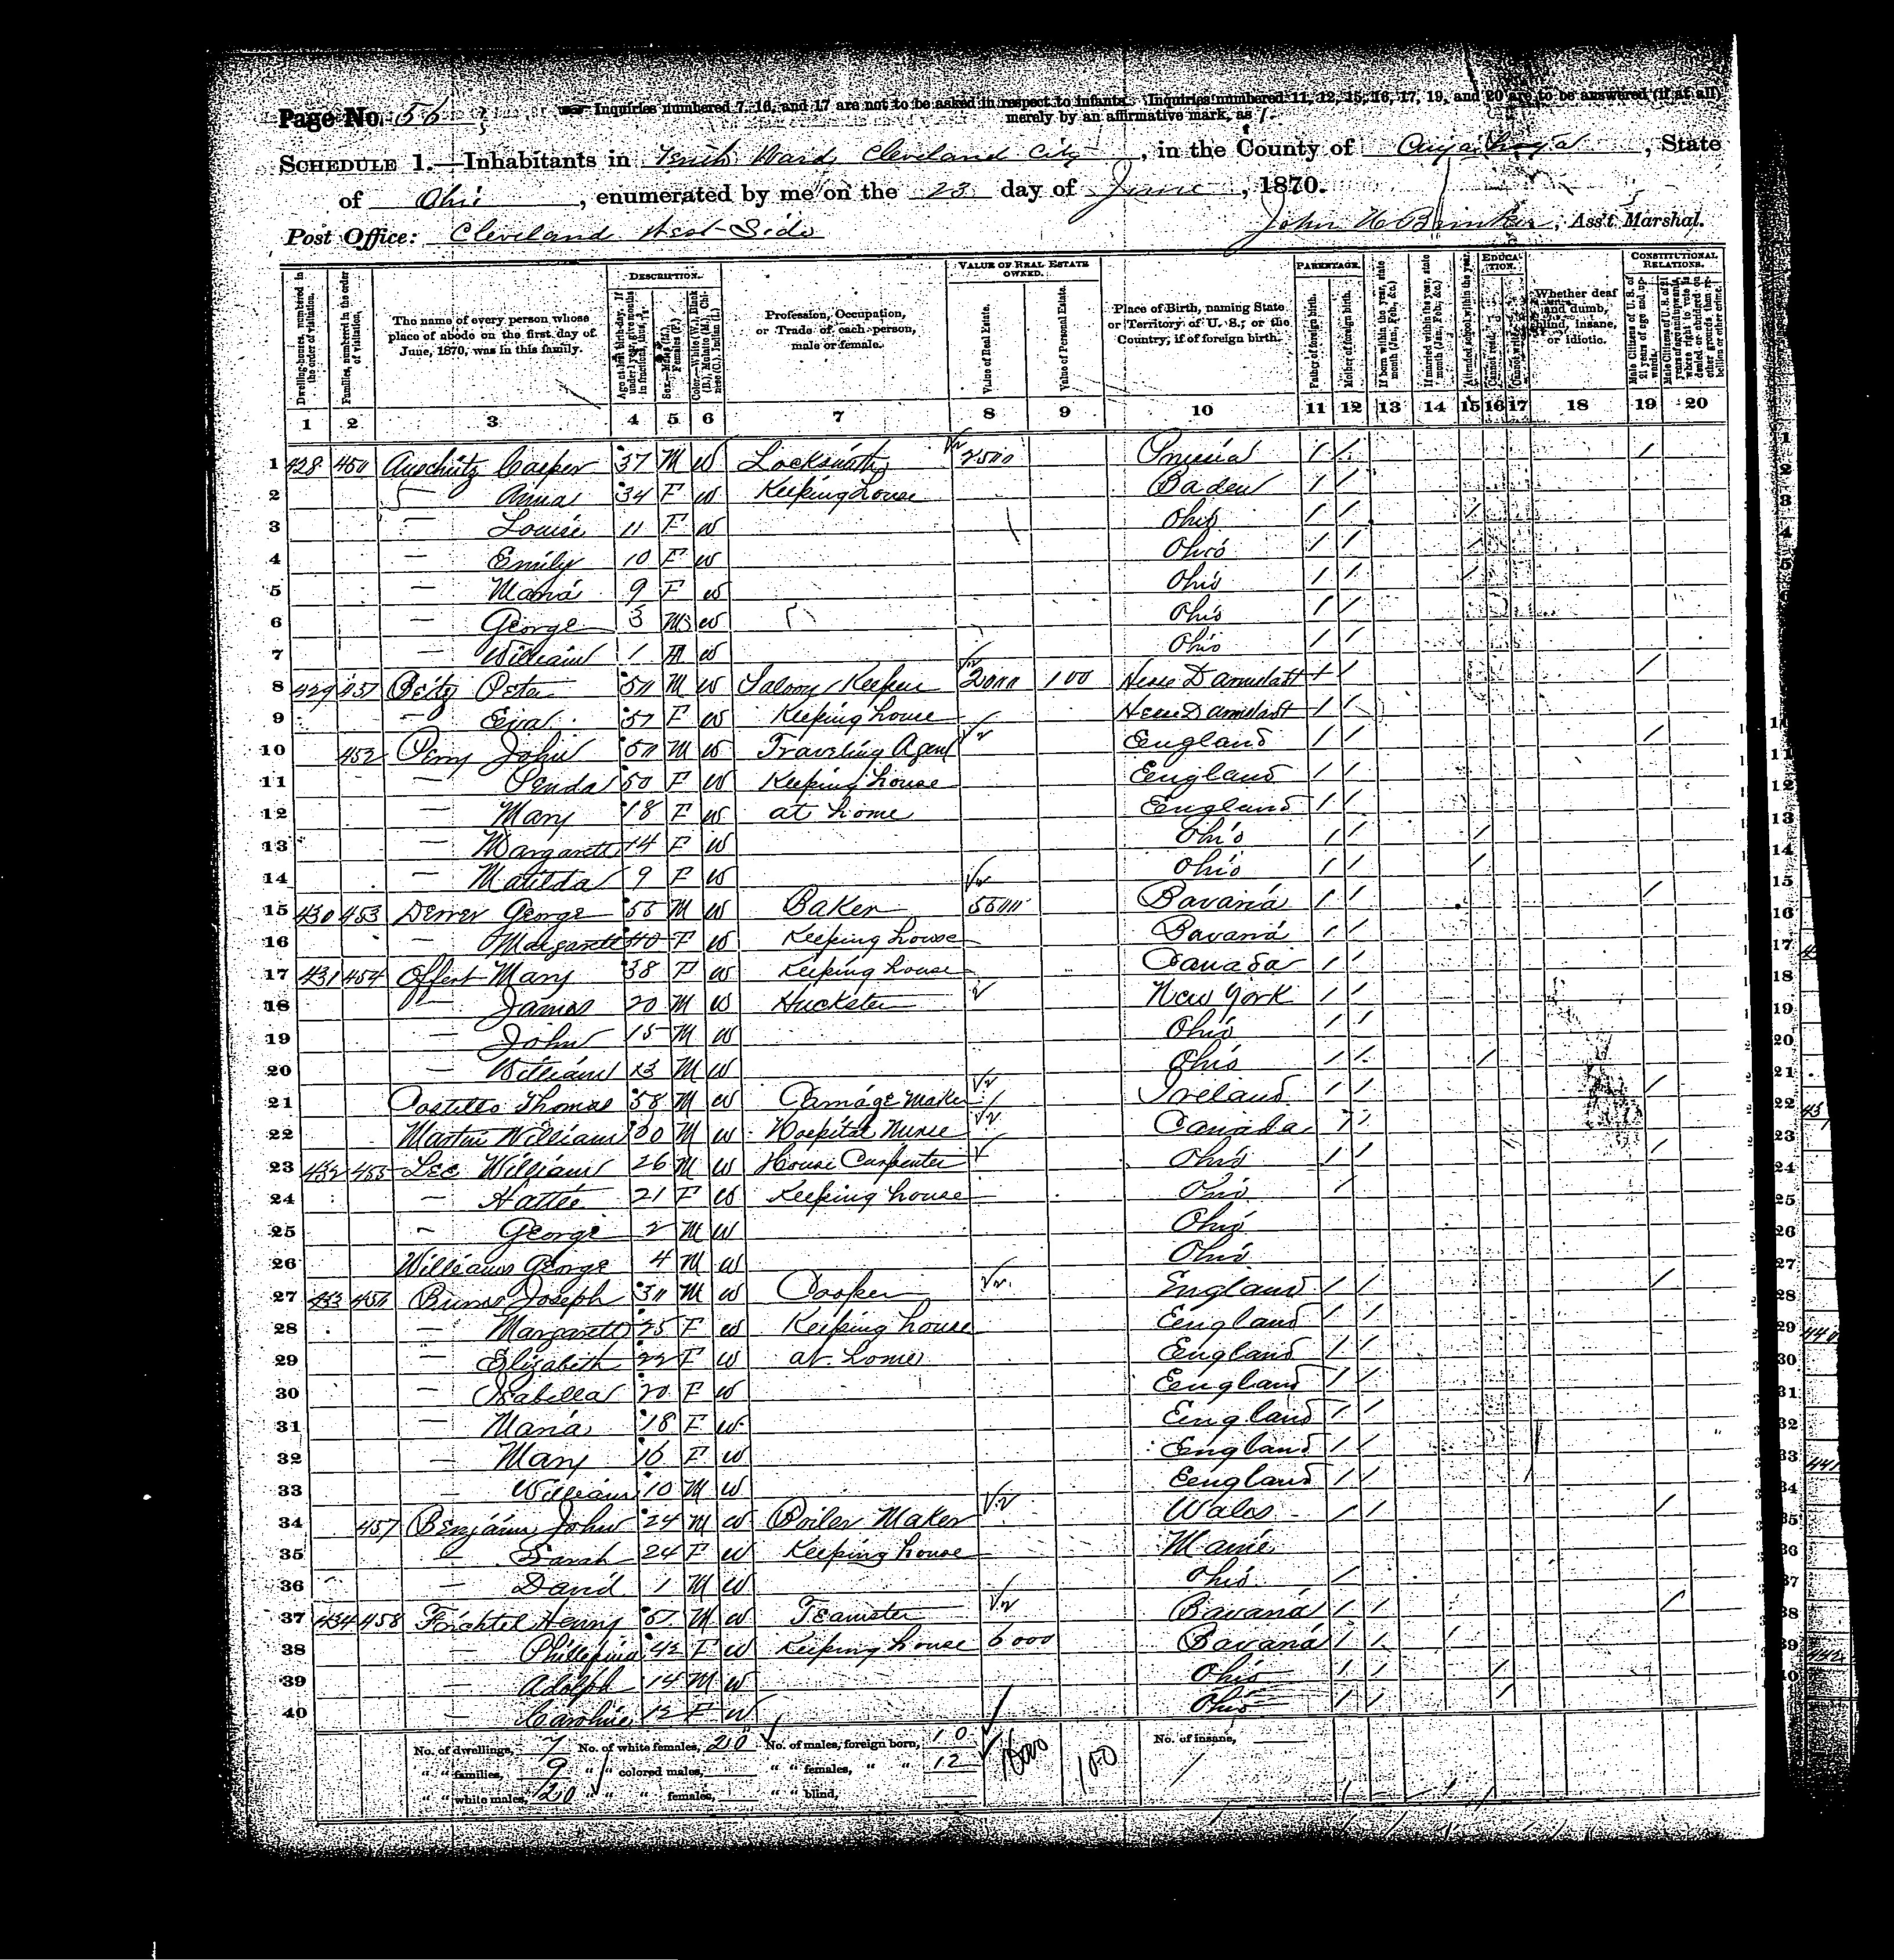 Page No. 56
Inquiries numbered 7, 16, and 17 are not to be asked in respect to infants. Inquiries numbered 11, 12, 15, 16, 17, 19, and 20 are to be answered (if at all)
merely by an affirmative mark, as /.
SCHEDULE 1.—Inhabitants in Tenth Ward, Cleveland City, in the County of Cuyahoga, State
of Ohio, enumerated by me on the 23 day of June, 1870.
Post Office: Cleveland West-Side
John H. Brinker, Ass't Marshal.
Dwelling-houses, numbered in the order of visitation.
Families, numbered in the order of visitation.
The name of every person whose place of abode on the first day of June, 1870, was in this family.
DESCRIPTION.
Age at last birth-day. If under 1 year, give months in fractions, thus, 3/12
Sex.—Males (M.), Females (F.)
Color.—White (W.), Black (B.), Mulatto (M.), Chinese (C.), Indian (I.)
Profession, Occupation, or Trade of each person, male or female.
VALUE OF REAL ESTATE OWNED.
Value of Real Estate.
Value of Personal Estate.
Place of Birth, naming State or Territory of U. S.; or the Country, if of foreign birth.
PARENTAGE.
Father of foreign birth.
Mother of foreign birth.
If born within the year, state month (Jan., Feb., &c.)
If married within the year, state month (Jan., Feb., &c.)
Attended school within the year.
EDUCATION.
Cannot read.
Cannot write.
Whether deaf and dumb, blind, insane, or idiotic.
CONSTITUTIONAL RELATIONS.
Male Citizens of U. S. of 21 years of age and upwards.
Male Citizens of U. S. of 21 years of age and upwards, where right to vote is denied or abridged on other grounds than rebellion or other crime.
1 2 3 4 5 6 7 8 9 10 11 12 13 14 15 16 17 18 19 20
1 428 450 Auschutz Casper 37 M W Locksmith 2500 Prussia / / /
2 — Anna 34 F W Keeping house Baden / /
3 — Louise 11 F W Ohio / / /
4 — Emily 10 F W Ohio / / /
5 — Maria 9 F W Ohio / / /
6 — George 3 M W Ohio / /
7 — William 1 M W Ohio / /
8 429 451 Beitz Peter 50 M W Saloon Keeper 2000 100 Hesse Darmstatt / / /
9 — Eva 57 F W Keeping house Hesse Darmstatt / /
10 452 Perry John 50 M W Traveling Agent England / / /
11 — Penda 50 F W Keeping house England / /
12 — Mary 18 F W at home England / /
13 — Margarett 14 F W Ohio / / /
14 — Matilda 9 F W Ohio / / /
15 430 453 Derrer George 55 M W Baker 5500 Bavaria / / /
16 — Margarett 40 F W Keeping house Bavaria / /
17 431 454 Offert Mary 38 F W Keeping house Canada / /
18 — James 20 M W Huckster New York / /
19 — John 15 M W Ohio / /
20 — William 13 M W Ohio / / /
21 Costello Thomas 58 M W Carriage Maker Ireland / / /
22 Martin William 30 M W Hospital Nurse Canada / /
23 432 455 Lee William 26 M W House Carpenter Ohio / / /
24 — Hattie 21 F W Keeping house Ohio /
25 — George 2 M W Ohio
26 Williams George 4 M W Ohio
27 433 456 Burns Joseph 30 M W Cooper England / / /
28 — Margarett 25 F W Keeping house England / /
29 — Elizabeth 22 F W at home England / /
30 — Isabella 20 F W England / /
31 — Maria 18 F W England / /
32 — Mary 16 F W England / /
33 — William 10 M W England / /
34 457 Benjamin John 24 M W Boiler Maker Wales / / /
35 — Sarah 24 F W Keeping house Maine
36 — David 1 M W Ohio /
37 434 458 Feichtel Henry 51 M W Teamster Bavaria / / /
38 — Phillepina 42 F W Keeping house 6000 Bavaria / /
39 — Adolph 14 M W Ohio / / /
40 — Caroline 12 F W Ohio / / /
No. of dwellings, 7 No. of white females, 20 No. of males, foreign born, 10 No. of insane,
" " families, 9 " " colored males, " " females, " " 12 16000 100
" " white males, 20 " " " females, " " blind,